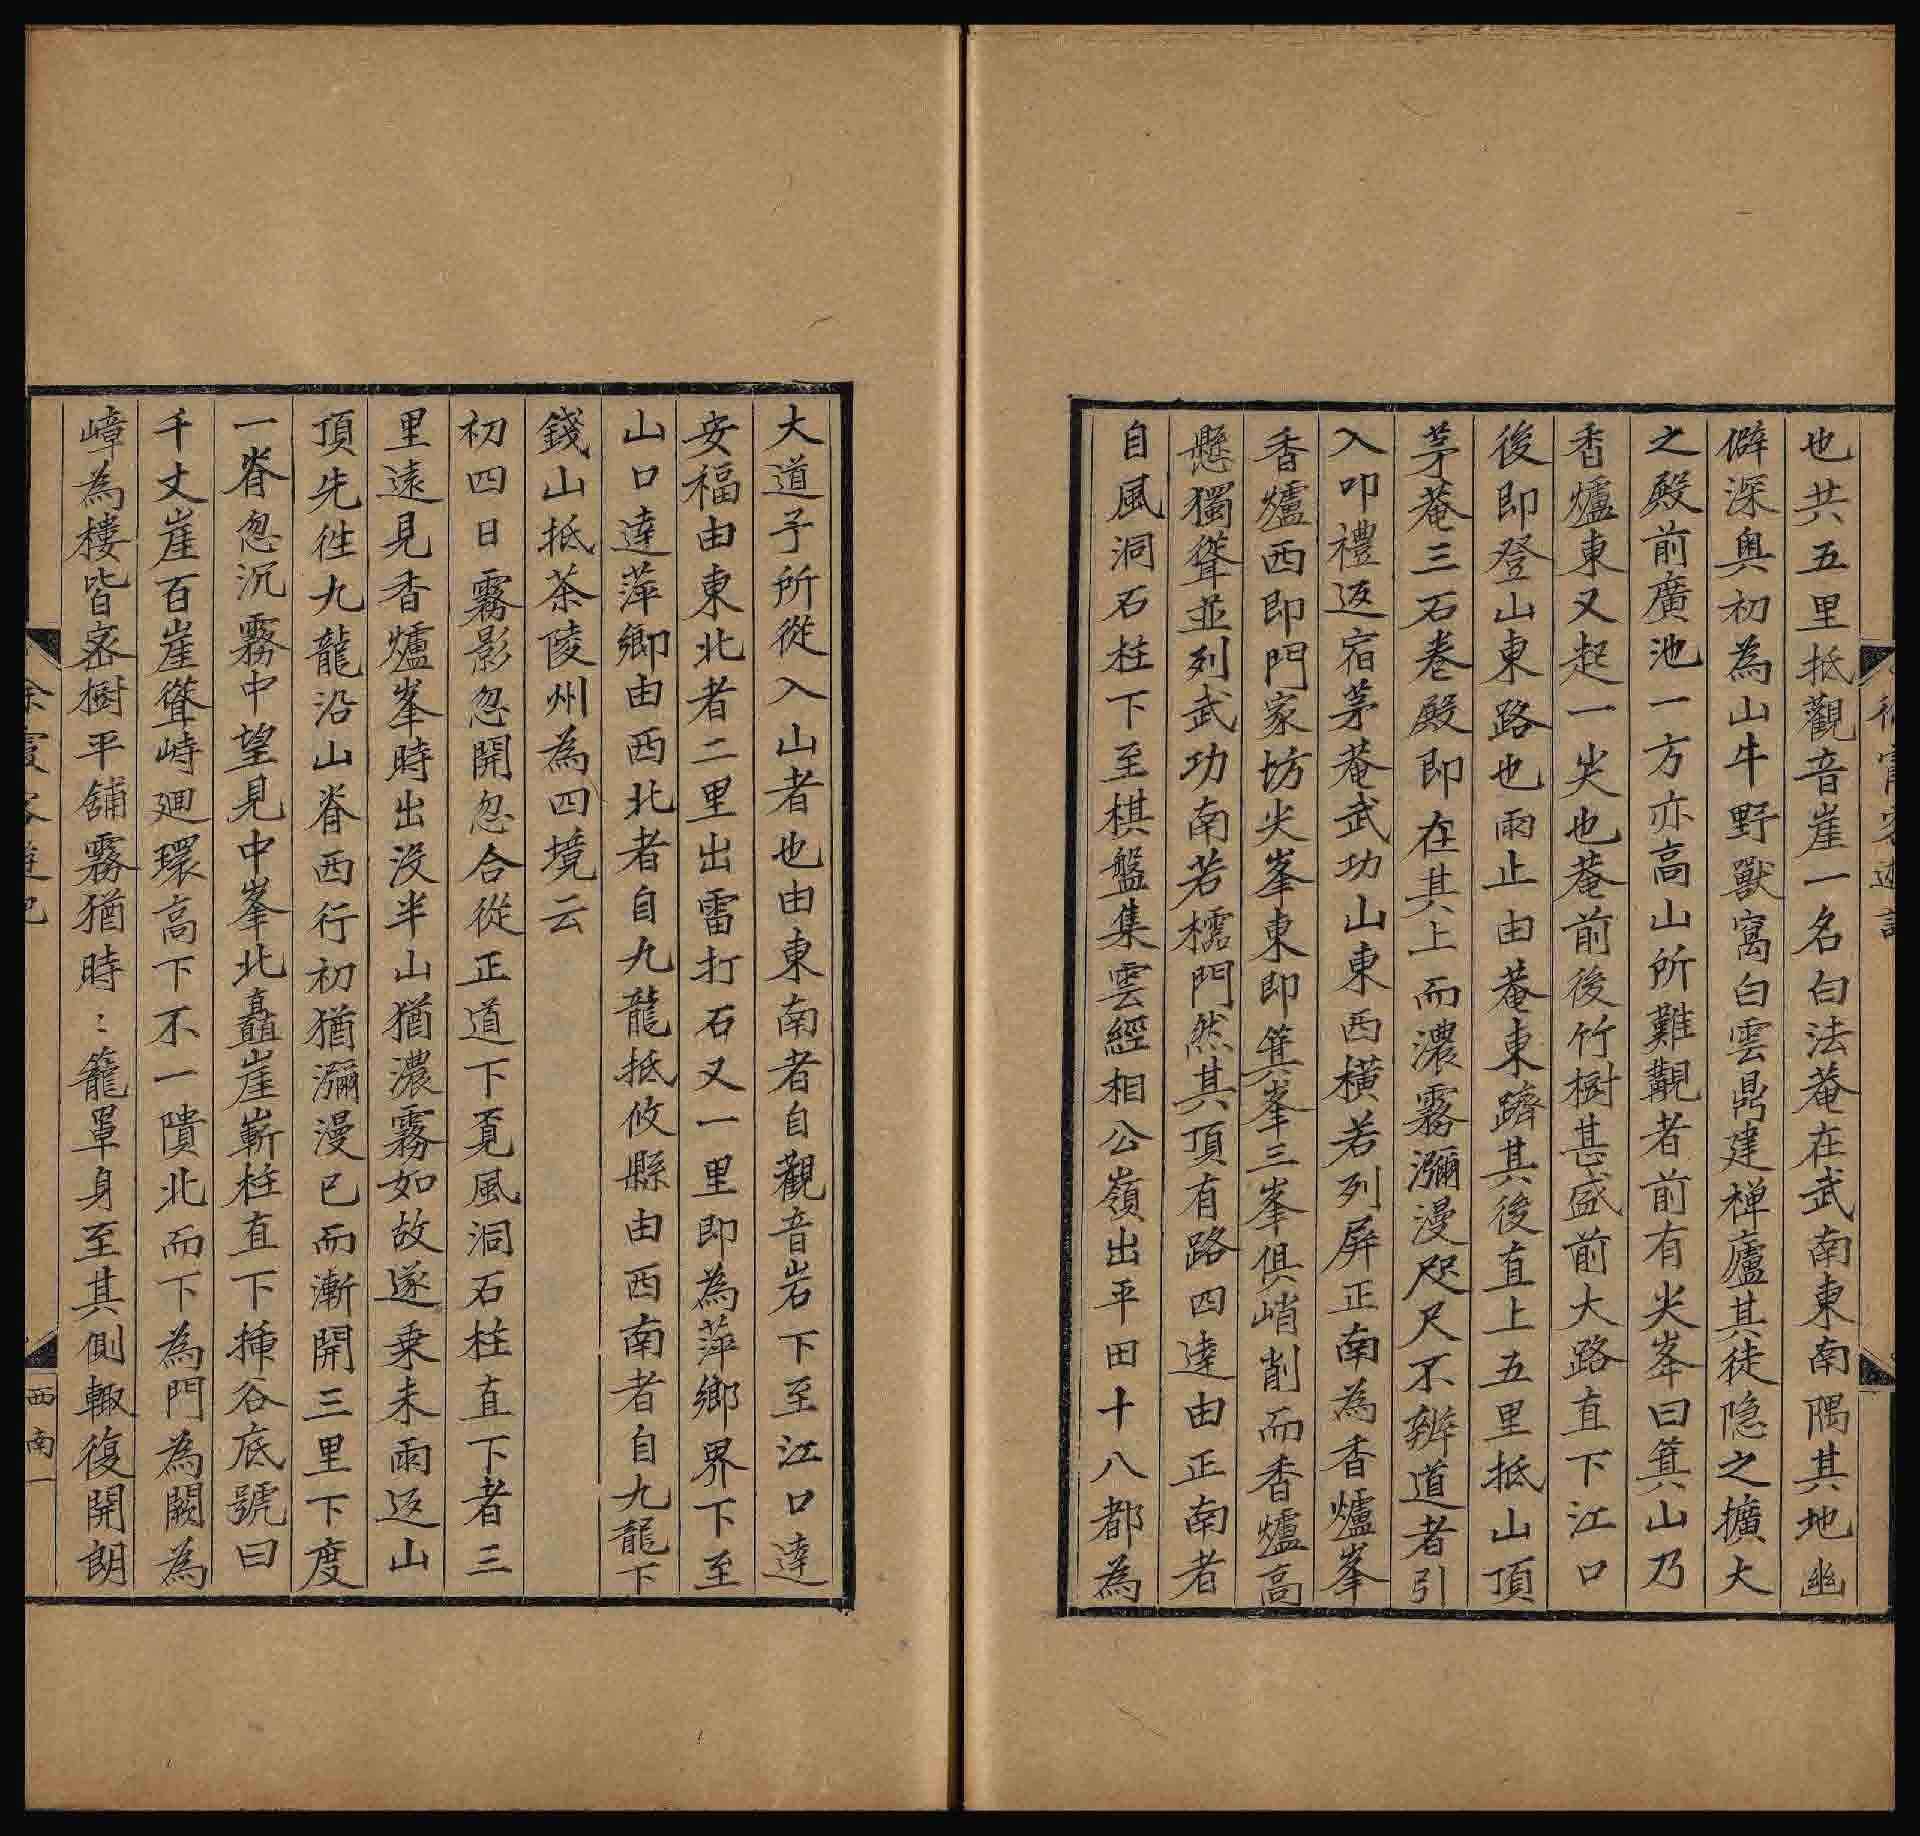 徐霞客遊記
也共五里抵觀音崖一名白法菴在武南東南隅其地幽
僻深奥初為山牛野獸窩白雲鼎建禅廬其徒隐之擴大
之殿前廣池一方亦高山所難覯者前有尖峯曰箕山乃
香爐東又起一尖也菴前後竹樹甚盛前大路直下江口
後即登山東路也雨止由菴東躋其後直上五里抵山頂
茅菴三石卷殿即在其上而濃霧瀰漫咫尺不辨道者引
入叩禮返宿茅菴武功山東西橫若列屏正南為香爐峯
香爐西即門家坊尖峯東即箕峯三峯俱峭削而香爐高
懸獨聳並列武功南若櫺門然其頂有路四達由正南者
自風洞石柱下至棋盤集雲經相公嶺出平田十八都為
大道予所從入山者也由東南者自觀音岩下至江口達
安福由東北者二里出雷打石又一里即為萍鄉界下至
山口達萍鄉由西北者自九龍抵攸縣由西南者自九龍下
錢山抵茶陵州為四境云
初四日霧影忽開忽合從正道下覔風洞石柱直下者三
里遠見香爐峯時出没半山猶濃霧如故遂乗未雨返山
頂先徃九龍沿山脊西行初猶瀰漫已而漸開三里下度
一脊忽沉霧中望見中峯北矗崖嶄柱直下揷谷底號曰
千丈崖百崖聳峙廻環高下不一隤北而下為門為闕為
嶂為樓皆宻樹平舖霧猶時〻籠罩身至其側輙復開朗
徐霞客遊記
西南一